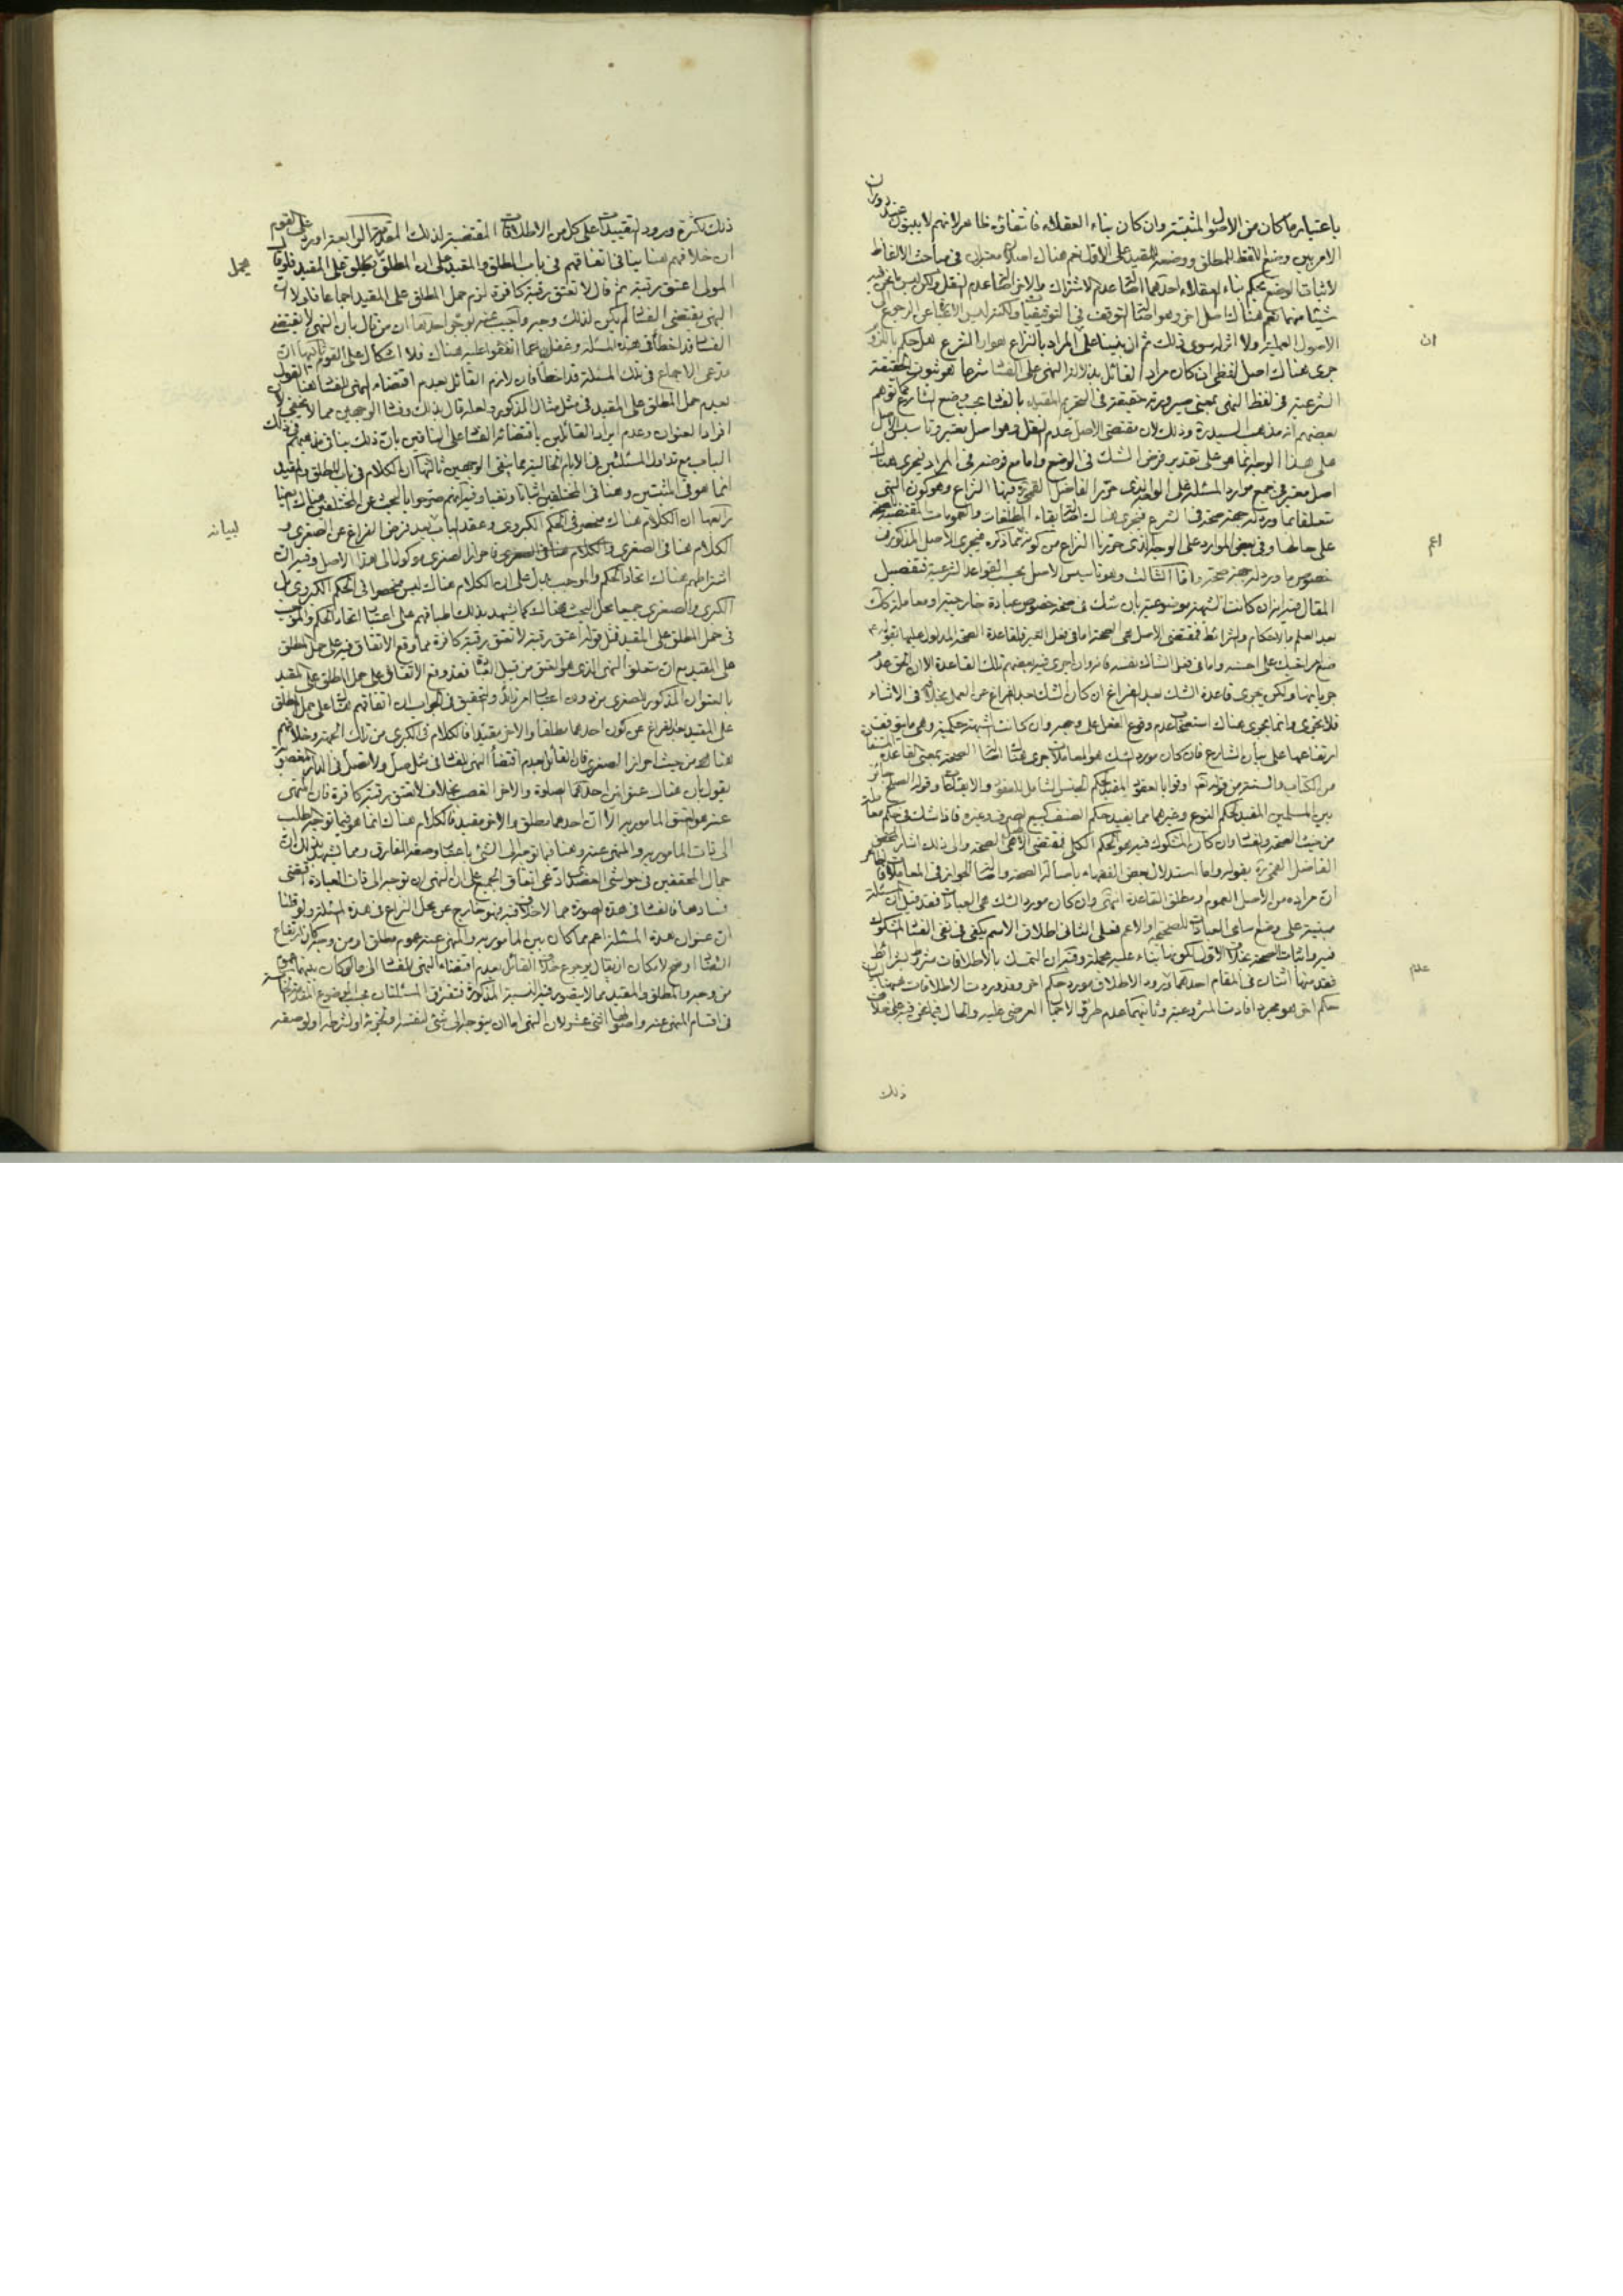 باعتبار ما كان من الاصول المثبتة وان كان بناء العقلاء فانتفاؤه ظاهر لانهم لا يبنون عند دوران
الامر بين وضع اللفظ للمطلق ووضعه للمقيد على الاول نعم هناك اصلان معتبران في مباحث الالفاظ
لاثبات الوضع بحكم بناء العقلاء احدهما اصالة عدم الاشتراك والاخر اصالة عدم النقل ولكن ليس ما نحن فيه
شيئا منهما نعم هناك اصل اخر وهو اصالة التوقف في التوقيفيات ولكنه ليس الاغناء عن الرجوع الى
الاصول العملية ولا اثر له سوى ذلك ثم ان بنينا على المراد بالنزاع هو ان الشرع هل حكم بالفساد
جرى هناك اصل لفظي ان كان مراد القائل بدلالة النهي على الفساد شرعا هو ثبوت الحقيقة
الشرعية في لفظ النهي بمعنى صيرورته حقيقة في التحريم المقيد بالفساد بحسب وضع الشارع كما توهم
بعضهم انه مذهب السيد ره وذلك لان مقتضى الاصل عدم النقل وهو اصل معتبر وتاسيس الاصل
على هذا الوجه انما هو على تقدير فرض الشك في الوضع واما مع فرضه في المراد فيجري هناك
اصل معتبر في جميع موارد المسئلة على الوجه الذي حرر الفاضل القمي ره فيها النزاع وهو كون النهي
متعلقا بما ورد له جهة صحة في الشرع فيجري هناك اصالة بقاء المطلقات والعمومات المقتضية للصحة
على حالها وفي بعض الموارد على الوجه الذي حررنا النزاع من كونه مما ذكره فيجري الاصل المذكور في
خصوص ما ورد له جهة صحة واما الثالث وهو تاسيس الاصل بحسب القواعد الشرعية فتفصيل
المقال فيه انه ان كانت الشبهة موضوعية بان شك في صحة خصوص عبادة خارجية او معاملة كك
بعد العلم بالاحكام والشرائط فمقتضى الاصل هي الصحة اما في فعل الغير فلقاعدة الصحة المدلول عليها بقوله ع
ضع امر اخيك على احسنه واما في فعل الشاك نفسه فانه وان اجرى فيه بعضهم تلك القاعدة الا ان الحق عدم
جريانها ولكن يجري قاعدة الشك بعد الفراغ ان كان الشك بعد الفراغ عن العمل بخلافه في الاثناء
فلا يجري وانما يجري هناك استصحاب عدم وقوع الفعل على وجهه وان كانت الشبهة حكمية وهي ما يتوقف
ارتفاعها على بيان الشارع فان كان مورد الشك هو المعاملات جرى هناك اصالة الصحة بمعنى القاعدة المستفادة
من الكتاب والسنة من قوله تعالى اوفوا بالعقود المفيد لحكم الجنس الشامل للعقود والايقاعات وقوله الصلح جائز
بين المسلمين المفيد لحكم النوع وغيرهما مما يفيد حكم الصنف كبيع الصرف وغيره فاذا شك في حكم معاملة
من حيث الصحة والفساد وان كان المشكوك فيه هو الحكم الكلي فمقتضى الاصل هي الصحة والى ذلك اشار المحقق
الفاضل القمي ره بقوله واما استدلال بعض الفقهاء باصالة الصحة واصالة الجواز في المعاملات فالظاهر
ان مراده من الاصل العموم او مطلق القاعدة انتهى وان كان مورد الشك هي العبادات فقد قيل ان المسئلة
مبنية على وضع اسامي العبادات للصحيحة او الاعم فعلى الثاني اطلاق الاسم يكفي في نفي الفساد المشكوك
فيه واثبات الصحة بخلاف الاول لكونها بناء عليه مجملة وفيه ان التمسك بالاطلاقات مشروط بشرائط
فقد منها اثنان في المقام احدهما ورود الاطلاق مورد حكم اخر وقد وردت الاطلاقات هيهنا لبيان
حكم اخر هو مجرد افادة المشروعية وثانيهما عدم طرو الاجمال العرضي عليه والحال فيما نحن فيه على خلاف
ان
اعم
عدم
ذلك
ذلك لكثرة ورود التقييدات على كل من الاطلاقات المقتضية لذلك المقدمة الرابعة اورد على القوم
ان خلافهم هنا ينافي اتفاقهم في باب المطلق والمقيد على ان المطلق يحمل على المقيد فلو قال
المولى اعتق رقبة ثم قال لا تعتق رقبة كافرة لزم حمل المطلق على المقيد اجماعا فلولا ان
النهي يقتضي الفساد لم يكن لذلك وجه واجيب عنه بوجوه احدها ان من قال بان النهي لا يقتضي
الفساد قد اخطأ في هذه المسئلة وغفل عما اتفقوا عليه هناك فلا اشكال على القوم ثانيها ان
مدعي الاجماع في تلك المسئلة قد اخطأ فان لازم القائل بعدم اقتضاء النهي للفساد هنا القول
بعدم حمل المطلق على المقيد في مثل مثال المذكور ولعله قال بذلك وفساد الوجهين مما لا يخفى لان
افراد العنوان وعدم ايراد القائلين باقتضائه الفساد على النافين بان ذلك ينافي مذهبهم في ذلك
الباب مع تداول المسئلتين في الايام الخالية مما ينفي الوجهين ثالثها ان الكلام في باب المطلق والمقيد
انما هو في المثبتين وهنا في المختلفين اثباتا ونفيا وفيه انهم صرحوا بالبحث عن المختلفين هناك ايضا
رابعها ان الكلام هناك منحصر في الحكم الكبروي وعقد الباب بعد فرض الفراغ عن الصغرى و
الكلام هنا في الصغرى فاحراز الصغرى موكول الى هذا الاصل وفيه ان
اشتراطهم هناك اتحاد الحكم والموجب يدل على ان الكلام هناك ليس منحصرا في الحكم الكبروي بل
الكبرى والصغرى جميعا محل البحث هناك كما يشهد بذلك اطباقهم على اعتبار اتحاد الحكم والموجب
في حمل المطلق على المقيد فمثل قوله اعتق رقبة لا تعتق رقبة كافرة مما وقع الاتفاق فيه على حمل المطلق
على المقيد مع ان متعلق النهي الذي هو العتق من قبيل فقد وقع الاتفاق على حمل المطلق على المقيد
بالعنوان المذكور للصغرى من دون اعتبار امر زائد والتحقيق في الجواب ان اتفاقهم هناك على حمل المطلق
على المقيد بعد الفراغ عن كون احدهما مطلقا والاخر مقيدا فالكلام في الكبرى من تلك الجهة وخلافهم
هنا من حيث احراز الصغرى فان القائل بعدم اقتضاء النهي للفساد في مثل صل ولا تصل في الدار المغصوبة
يقول بان هناك عنوانين احدهما الصلوة والاخر الغصب بخلاف لا تعتق رقبة كافرة فان المنهي
عنه هو العتق المامور به الا ان احدهما مطلق والاخر مقيد فالكلام هناك انما هو فيما توجه الطلب
الى ذات المامور به والمنهي عنه وهنا فيما توجه الى الشيء باعتبار وصفه المفارق ومما يشهد بذلك ان
جمال المحققين في حواشي العضدي ادعى اتفاق الجميع على ان النهي ان توجه الى ذات العبادة اقتضى
فسادها فالفساد في هذه الصورة مما لا خلاف فيه فهو خارج عن محل النزاع في هذه المسئلة ولو قلنا
ان عنوان هذه المسئلة اعم مما كان بين المامور به والمنهي عنه عموم مطلق او من وجه كان ارتفاع
اوضح لامكان ان يقال برجوع خلاف القائل بعدم اقتضاء النهي للفساد الى ما لو كان بينهما عموم
من وجه والمطلق والمقيد مما لا يتصور فيه النسبة المذكورة فتفترق المسئلتان بحسب الموضوع المقدمة الخامسة
في اقسام المنهي عنه واصولها اثنى عشر لان النهي اما ان يتوجه الى شيء لنفسه او لجزئه او لشرطه او لوصفه
يحمل
لبيانه